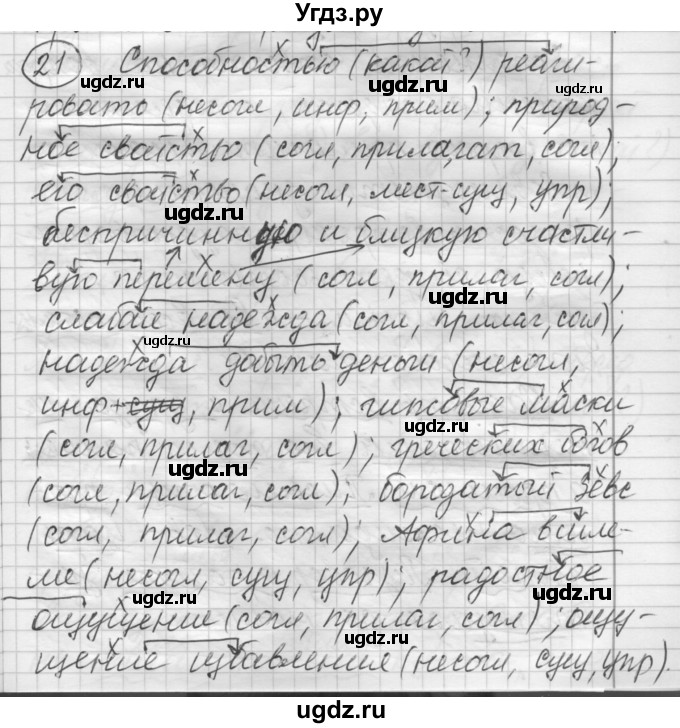 Угдз.ру
21 Способностью (какой?) реаги-
ровать (несогл, инф, прим); природ-
ное свойство (согл, прилагат, согл);
его свойство (несогл, мест-сущ, упр);
беспричинную и близкую счастли-
вую перемену (согл, прилаг, согл);
слабая надежда (согл, прилаг, согл);
надежда добыть деньги (несогл,
инф+сущ, прим); гипсовые маски
(согл, прилаг, согл); греческих богов
(согл, прилаг, согл); бородатый Зевс
(согл, прилаг, согл); Афина в шле-
ме (несогл, сущ, упр); радостное
ощущение (согл, прилаг, согл); ощу-
щение избавления (несогл, сущ, упр).
угдз.ру